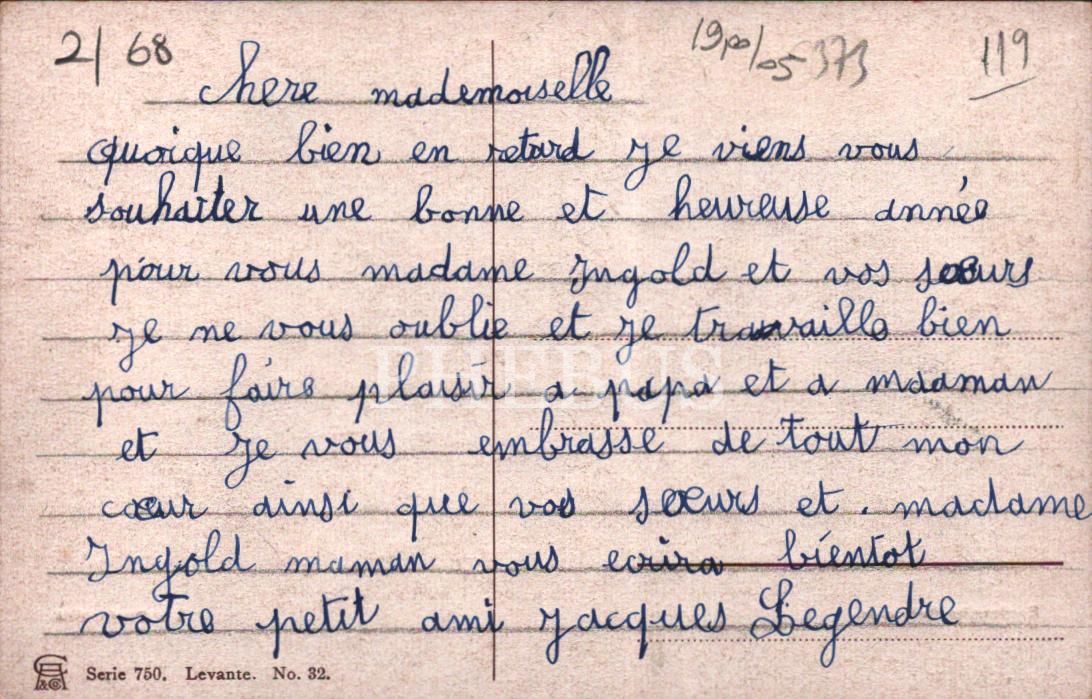 2/ 68 1900/05 373 119
chere mademoiselle
quoique bien en retard je viens vous
souhaiter une bonne et heureuse année
pour vous madame Ingold et vos sœurs
je ne vous oublie et je travaille bien
pour faire plaisir a papa et a maaman
et je vous embrasse de tout mon
cœur ainsi que vos sœurs et madame
Ingold maman vous ecrira bientot
votre petit ami Jacques Legendre
PHEBUS
Serie 750. Levante. No. 32.